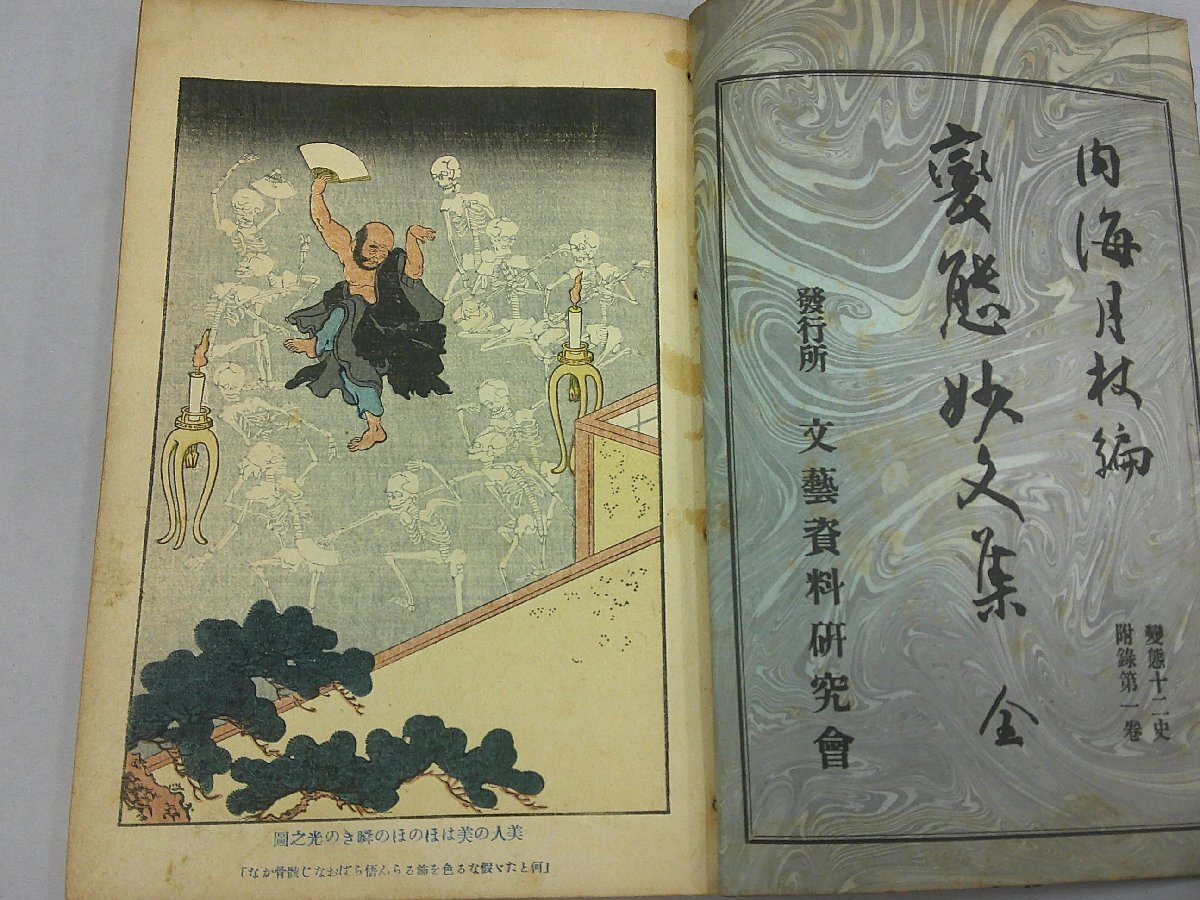 變態十二史
附錄第一卷
内海月杖編
變態妙文集 全
發行所 文藝資料研究會
美人の美はほのほの瞬きの光之圖
「何とたゞ假なる色を飾るらん悟らばおなじ骸骨かな」